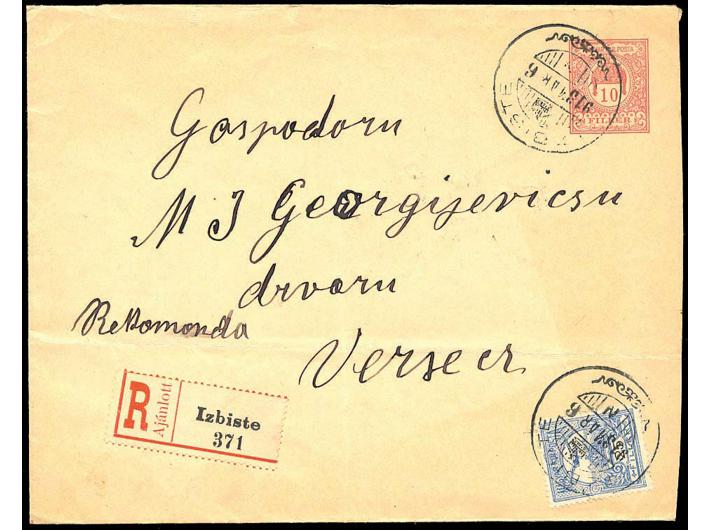 10
FILLÉR
Gospodoru
M J Georgijevicsu
drvaru
Rekomonda
Versecz
R
Ajánlott
Izbiste
371